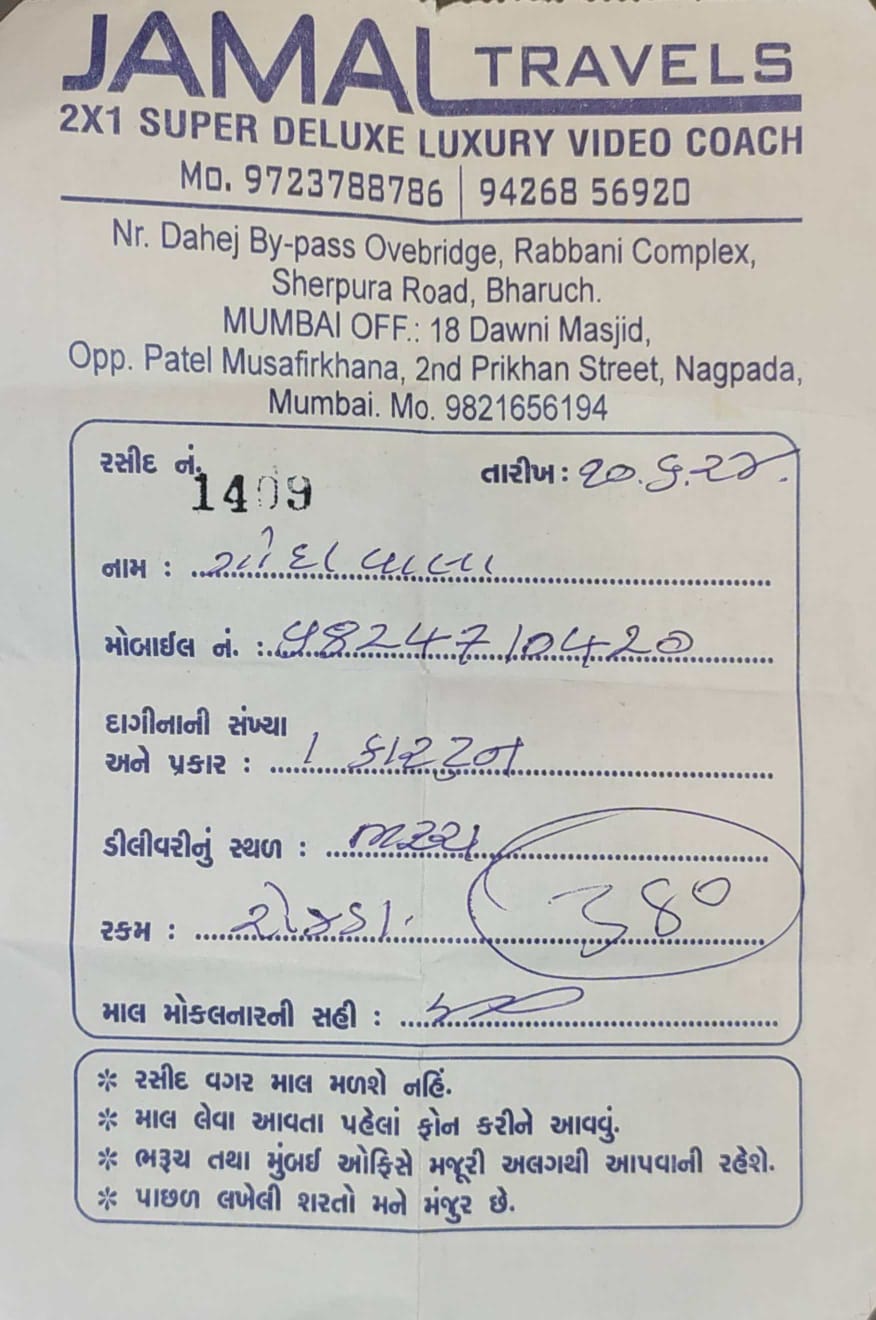 JAMAL TRAVELS
2X1 SUPER DELUXE LUXURY VIDEO COACH
Mo. 9723788786 | 94268 56920
Nr. Dahej By-pass Ovebridge, Rabbani Complex,
Sherpura Road, Bharuch.
MUMBAI OFF.: 18 Dawni Masjid,
Opp. Patel Musafirkhana, 2nd Prikhan Street, Nagpada,
Mumbai. Mo. 9821656194
રસીદ નં. 1409 તારીખ :
નામ :
મોબાઈલ નં. : 9824710420
દાગીનાની સંખ્યા
અને પ્રકાર : 1 કારટુન
ડીલીવરીનું સ્થળ : ભરૂચ
રકમ : રોકડા
માલ મોકલનારની સહી :
* રસીદ વગર માલ મળશે નહિં.
* માલ લેવા આવતા પહેલાં ફોન કરીને આવવું.
* ભરૂચ તથા મુંબઈ ઓફિસે મજૂરી અલગથી આપવાની રહેશે.
* પાછળ લખેલી શરતો મને મંજુર છે.